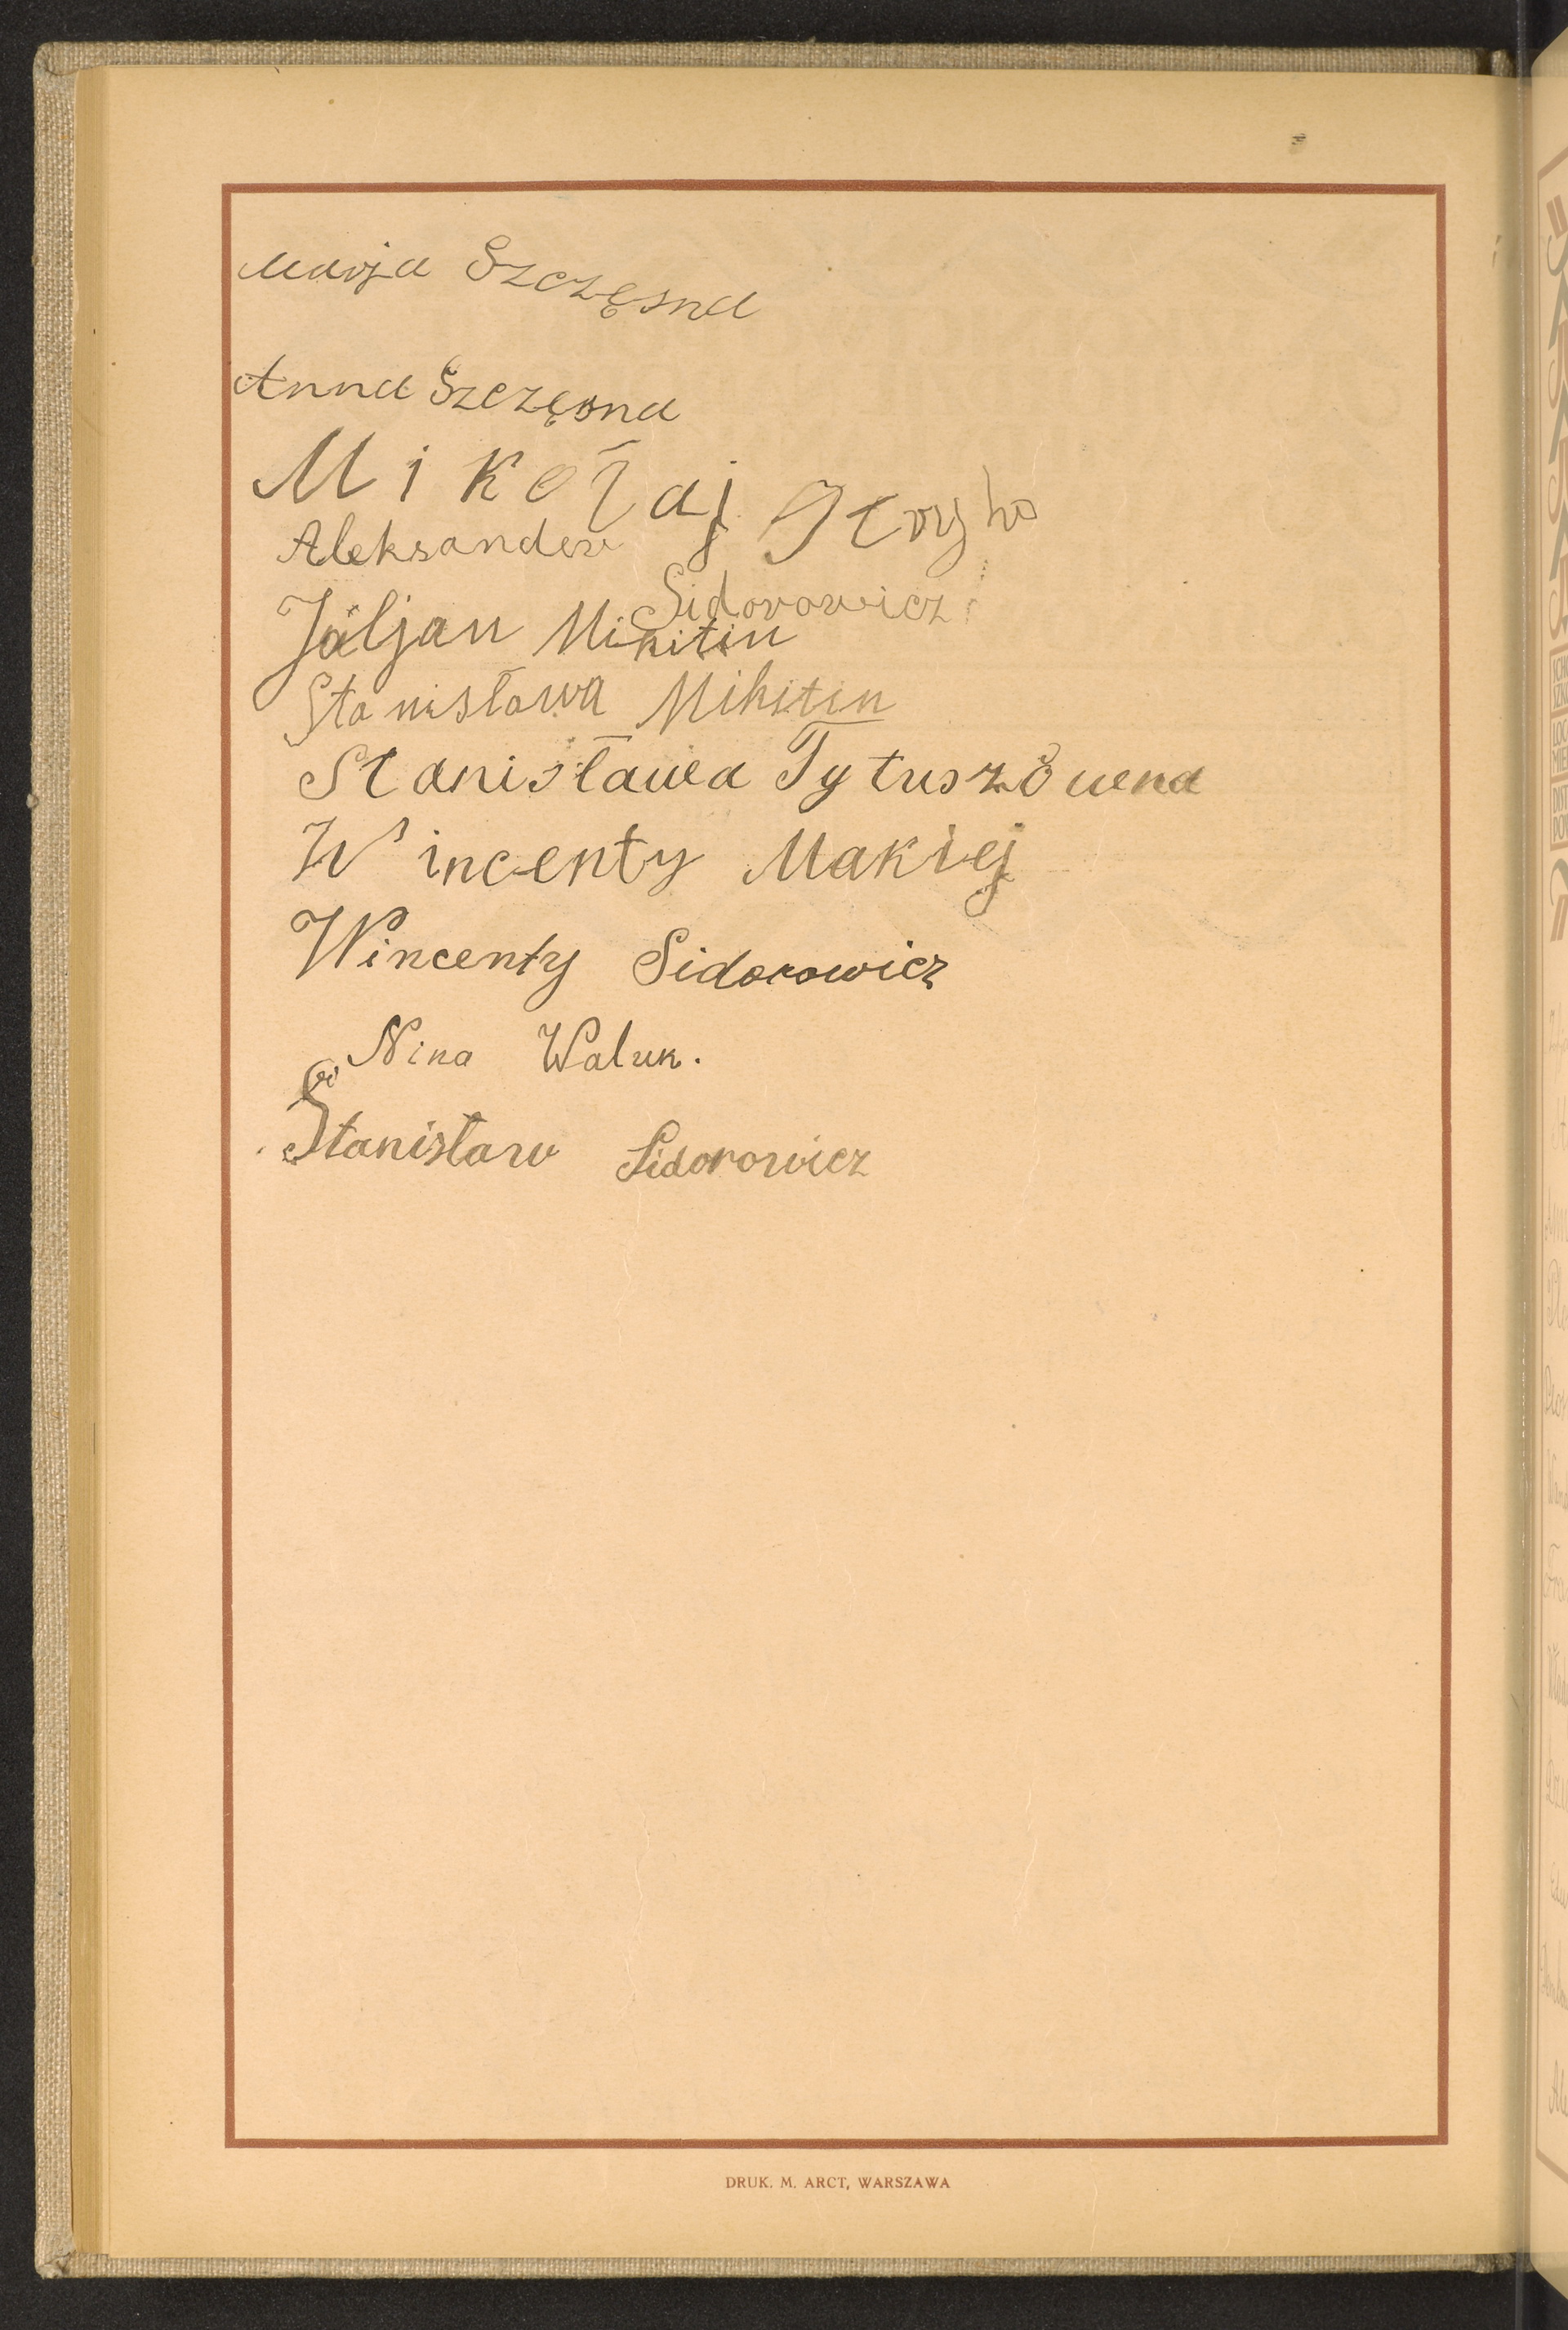 Marja Szczęsna
Anna Szczęsna
Mikołaj
Aleksander Sidorowicz
Juljan Mikitin
Stanisława Mikitin
Stanisława Tytuszówna
Wincenty Makiej
Wincenty Sidorowicz
Nina Waluk.
Stanisław Sidorowicz
DRUK. M. ARCT, WARSZAWA